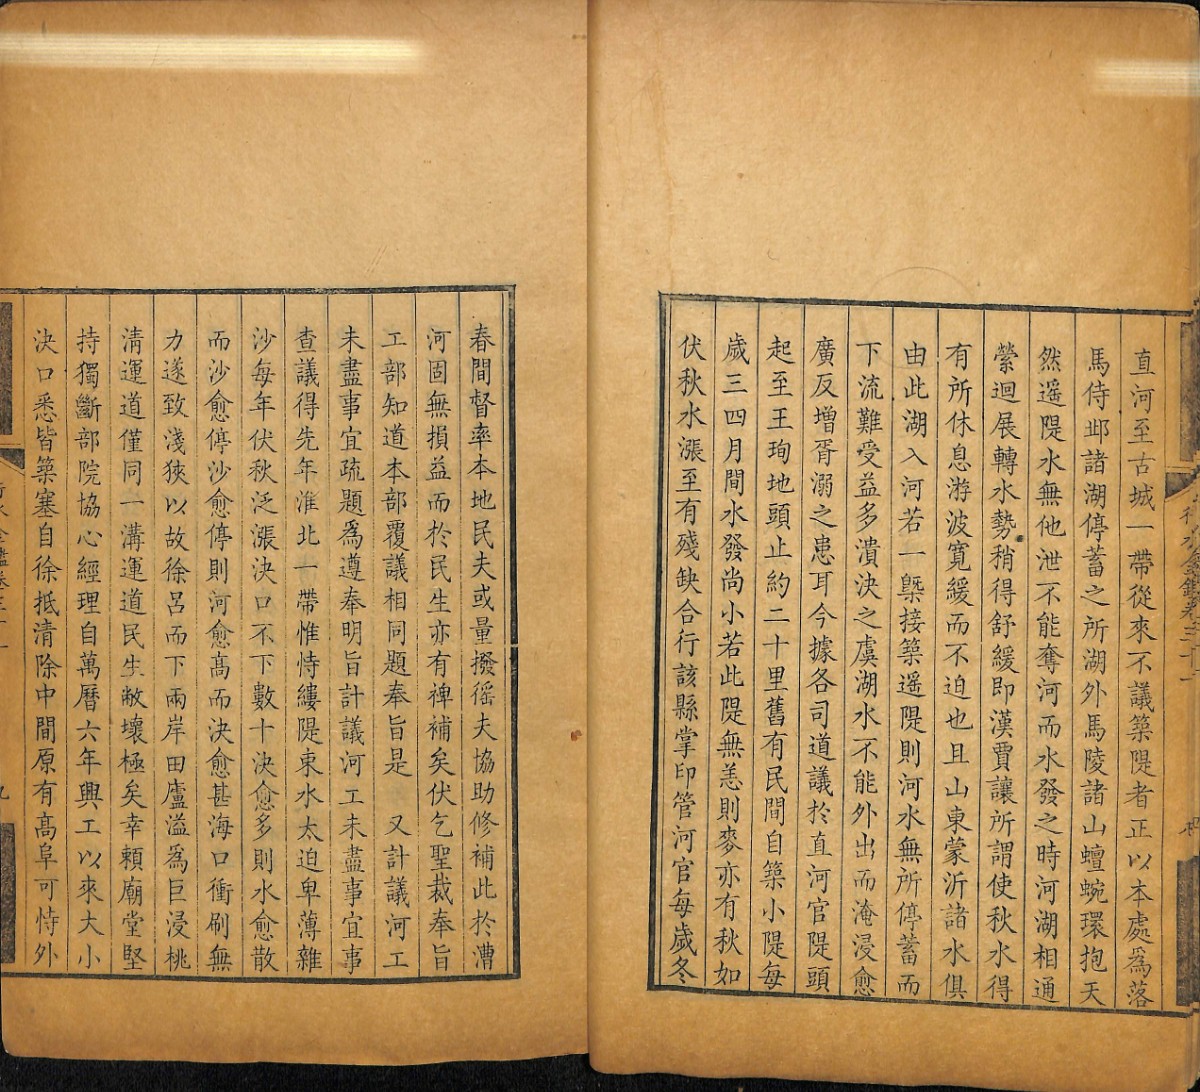 直河至古城一帶從來不議築隄者正以本處爲落
馬侍邱諸湖停蓄之所湖外馬陵諸山蟺蜿環抱天
然遥隄水無他泄不能奪河而水發之時河湖相通
縈迴展轉水勢稍得舒緩即漢賈讓所謂使秋水得
有所休息游波寛緩而不迫也且山東蒙沂諸水俱
由此湖入河若一槩接築遥隄則河水無所停蓄而
下流難受益多潰決之虞湖水不能外出而淹浸愈
廣反增胥溺之患耳今據各司道議於直河官隄頭
起至王珣地頭止約二十里舊有民間自築小隄每
歲三四月間水發尚小若此隄無恙則麥亦有秋如
伏秋水漲至有殘缺合行該縣掌印管河官每歲冬
春間督率本地民夫或量撥徭夫協助修補此於漕
河固無損益而於民生亦有裨補矣伏乞聖裁奉旨
工部知道本部覆議相同題奉旨是　又計議河工
未盡事宜疏題爲遵奉明旨計議河工未盡事宜事
查議得先年淮北一帶惟恃縷隄東水太迫卑薄雜
沙每年伏秋泛漲決口不下數十決愈多則水愈散
而沙愈停沙愈停則河愈高而決愈甚海口衝刷無
力遂致淺狹以故徐呂而下兩岸田廬溢爲巨浸桃
清運道僅同一溝運道民生敝壞極矣幸賴廟堂堅
持獨斷部院協心經理自萬曆六年興工以來大小
決口悉皆築塞自徐抵清除中間原有高阜可恃外
行水金鑑卷三十一
九